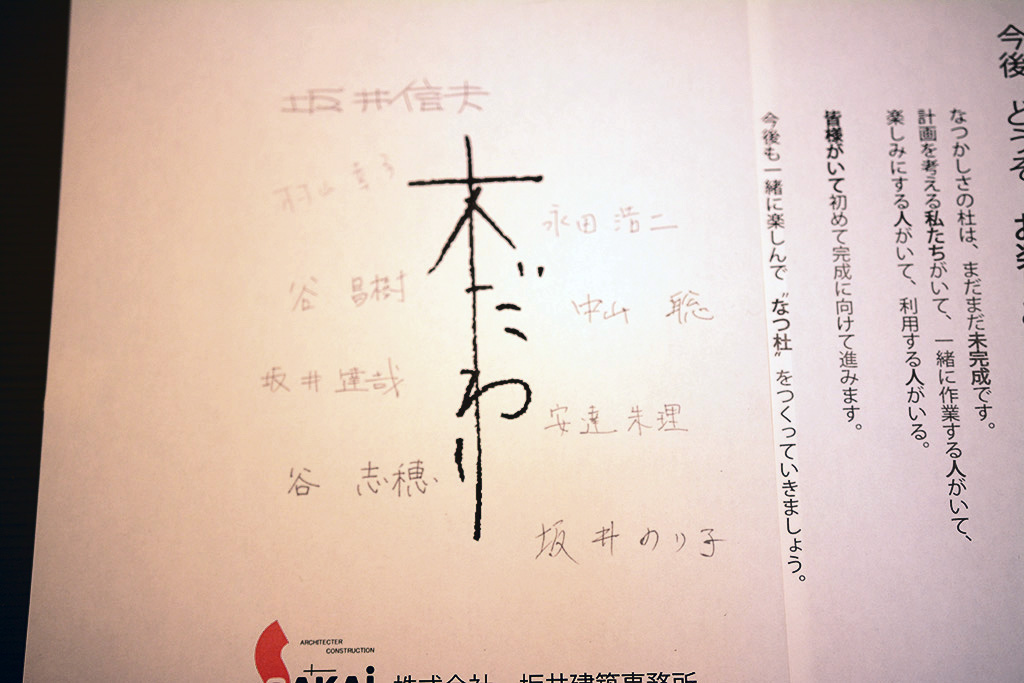 今後 どうぞ お楽
なつかしさの杜は、まだまだ未完成です。
計画を考える私たちがいて、一緒に作業する人がいて、
楽しみにする人がいて、利用する人がいる。
皆様がいて初めて完成に向けて進みます。
今後も一緒に楽しんで〝なつ杜〟をつくっていきましょう。
坂井信夫
村山幸子
永田浩二
谷 昌樹
中山 聡
坂井達哉
安達朱理
谷 志穂
坂井のり子
木だわり
ARCHITECTER
CONSTRUCTION
SAKAi 株式会社 坂井建築事務所